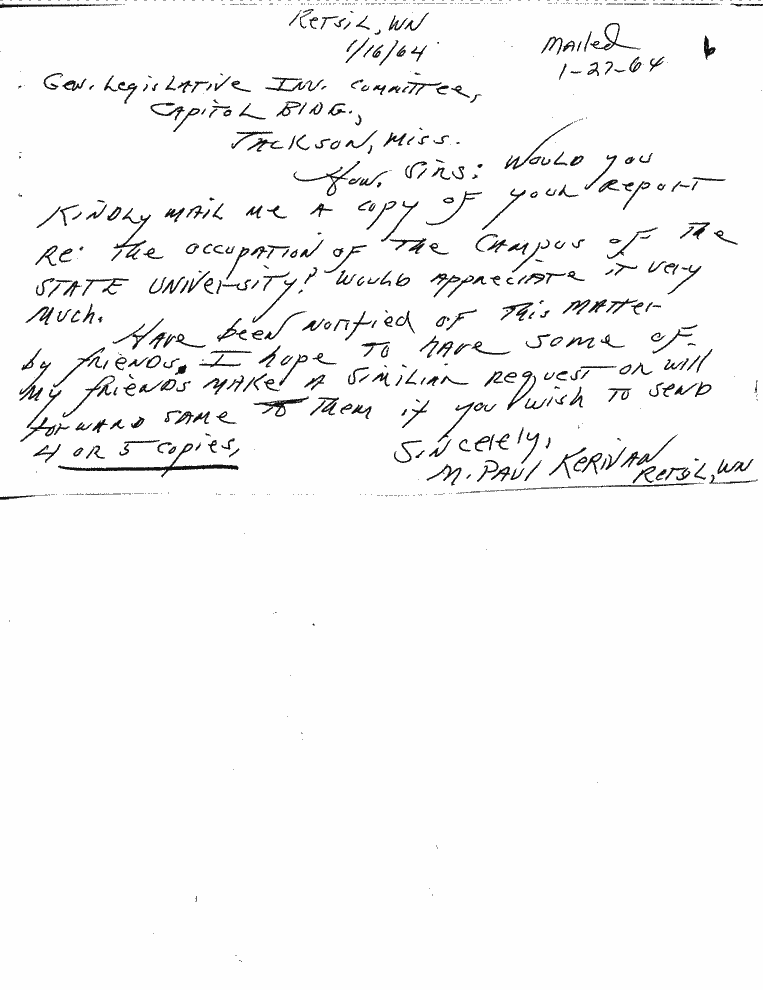 Retsil, WN
1/16/64
Mailed
1-27-64
Gen. Legislative Inv. Committee,
Capitol Bldg.,
Jackson, Miss.
Hon. Sirs: Would you
kindly mail me a copy of your report
re: the occupation of the campus of the
State University? Would appreciate it very
much.
Have been notified of this matter
by friends. I hope to have some of
my friends make a similiar request or will
forward same to them if you wish to send
4 or 5 copies,
Sincerely,
M. Paul Kerivan
Retsil, WN